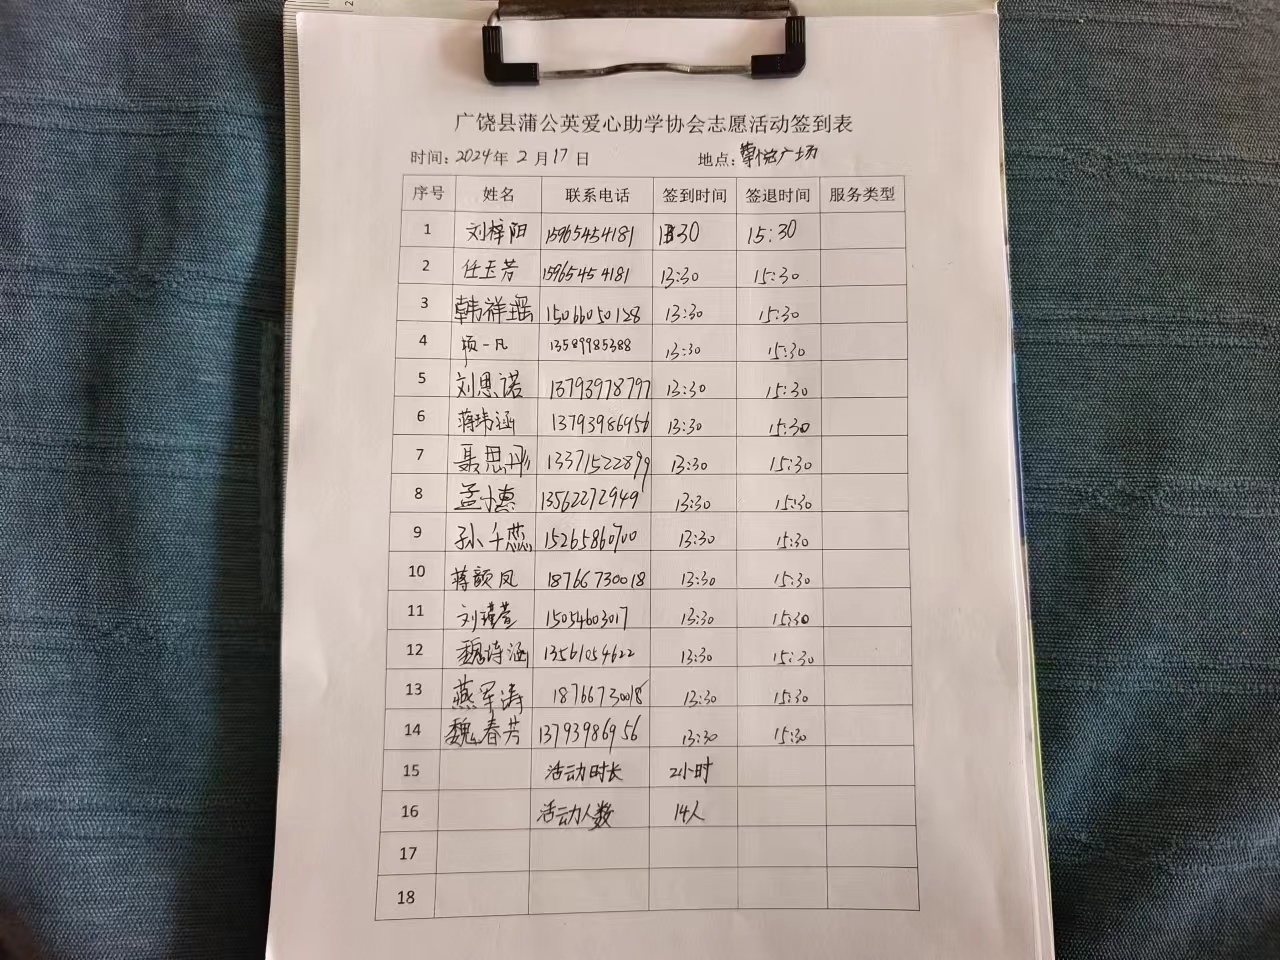 广饶县蒲公英爱心助学协会志愿活动签到表
时间: 2024年 2 月 17 日 地点: 广场
序号 姓名 联系电话 签到时间 签退时间 服务类型
1 刘梓阳 15965454181 13:30 15:30
2 任玉芳 15965454181 13:30 15:30
3 韩祥瑶 15066050128 13:30 15:30
4 一凡 13589985388 13:30 15:30
5 刘思诺 13793978797 13:30 15:30
6 蒋玮涵 13793986956 13:30 15:30
7 聂思彤 13371522899 13:30 15:30
8 孟小惠 13562272949 13:30 15:30
9 孙千蕊 15265860700 13:30 15:30
10 蒋颜凤 18766730018 13:30 15:30
11 刘瑾萱 15054603017 13:30 15:30
12 魏诗涵 13561054622 13:30 15:30
13 燕军涛 18766730018 13:30 15:30
14 魏春芳 13793986956 13:30 15:30
15 活动时长 2小时
16 活动人数 14人
17
18